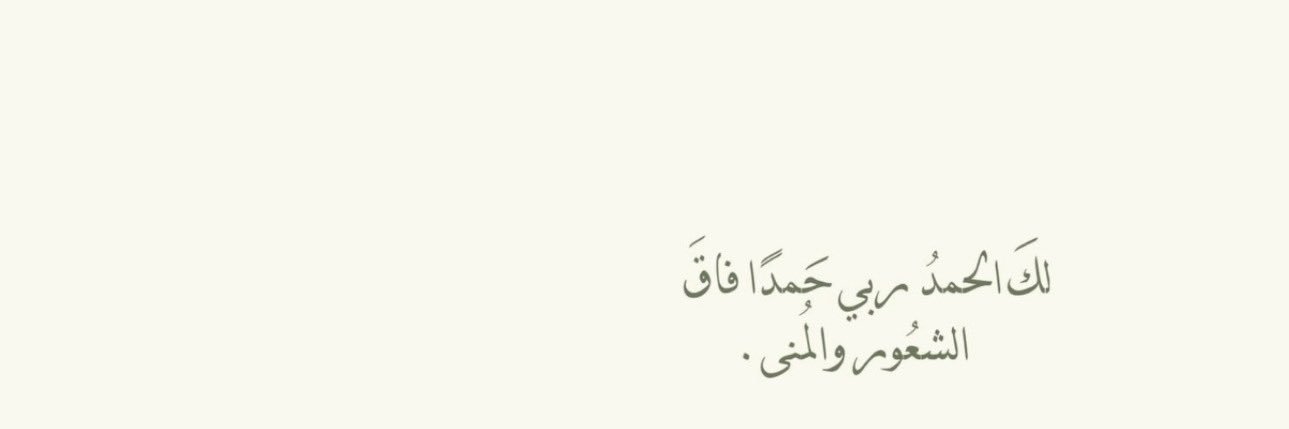 لكَ الحمدُ ربي حَمدًا فاقَ
الشعُور والمُنى .